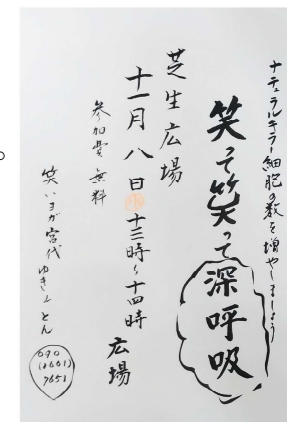 ナチュラルキラー細胞の数を増やしましょう
笑って笑って深呼吸
芝生広場
十一月八日㊌十三時〜十四時
広場
参加費 無料
笑いヨガ宮代 ゆきりとん
090
(2661)
7651